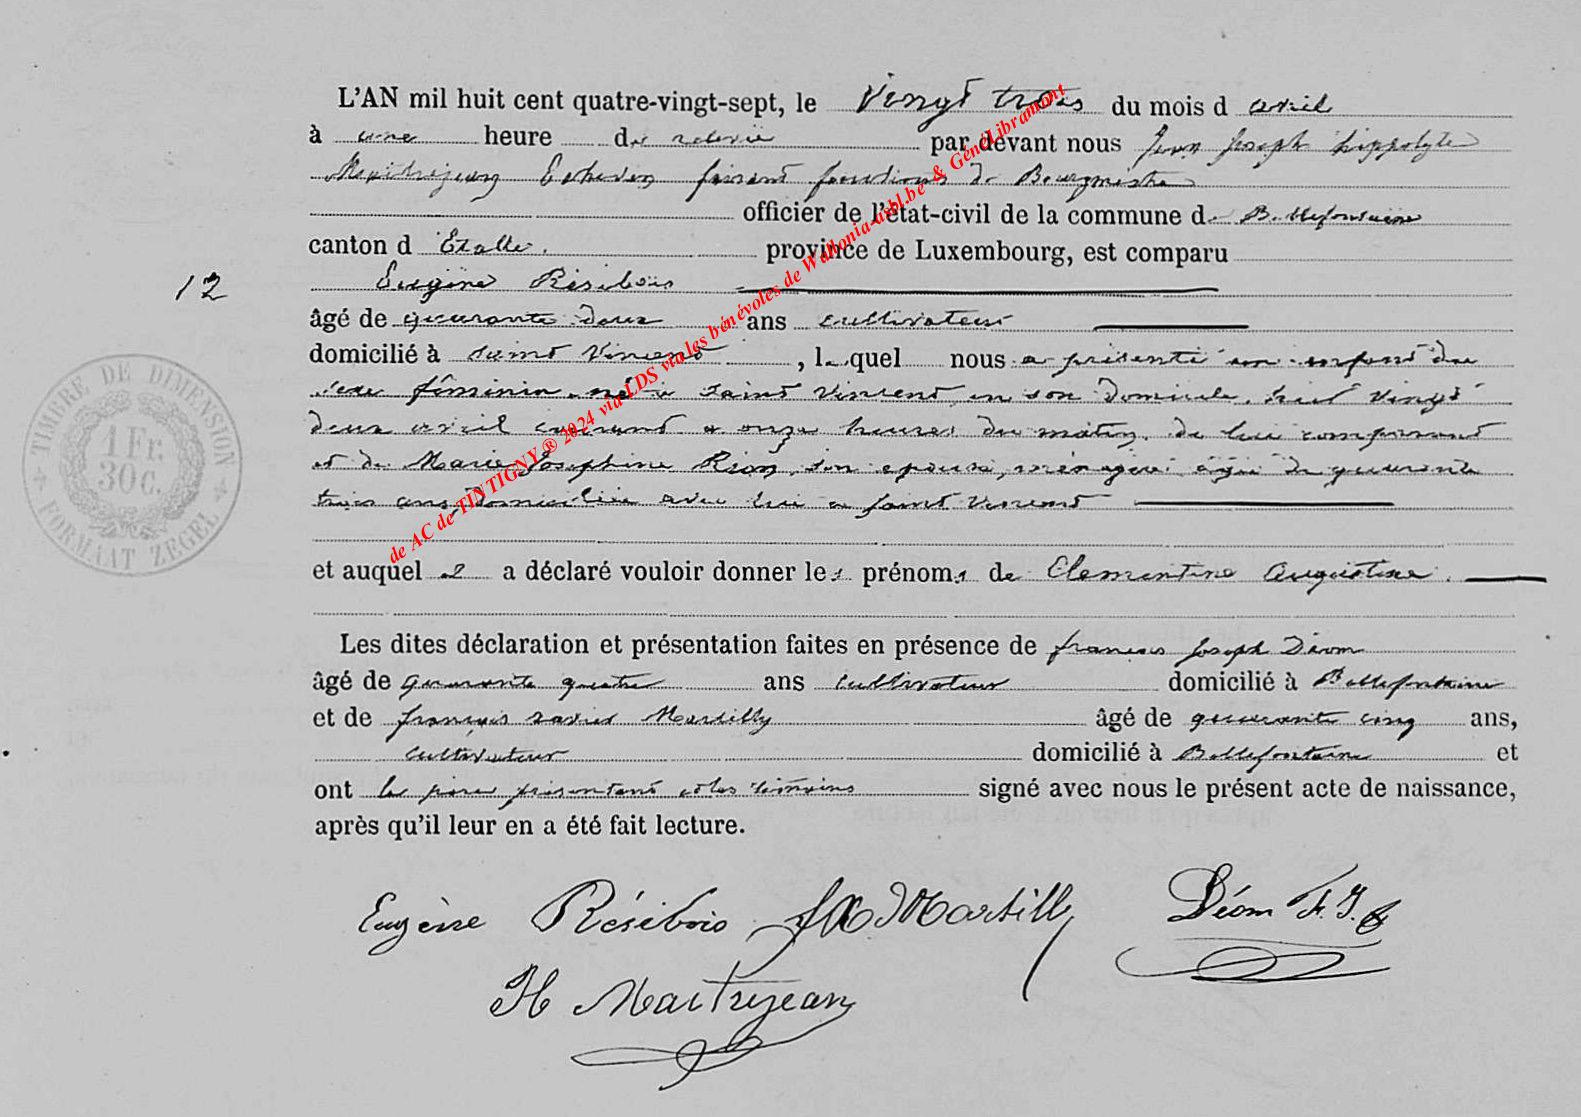 L'AN mil huit cent quatre-vingt-sept, le Vingt trois du mois d avril
à une heure de relevée par devant nous Jean Joseph hippolyte
Maitrejean Echevin faisant fonctions de Bourgmestre
officier de l'état-civil de la commune de Bellefontaine
canton d'Etalle. province de Luxembourg, est comparu
12
Eugène Résibois
âgé de quarante deux ans cultivateur
domicilié à Saint Vincent, lequel nous a présenté un enfant du
sexe féminin né à Saint Vincent, en son domicile,
deux avril courant à onze heures du matin, de lui comparant
et de Marie Josephine Rion, son épouse, ménagère âgée de quarante
trois ans, domiciliée avec lui a Saint Vincent
et auquel il a déclaré vouloir donner les prénoms de Clementine Augustine.
Les dites déclaration et présentation faites en présence de françois Joseph Déom
âgé de quarante quatre ans cultivateur domicilié à Bellefontaine
et de françois xavier Marsilly âgé de quarante cinq ans,
cultivateur domicilié à Bellefontaine et
ont le père présentant et les témoins signé avec nous le présent acte de naissance,
après qu'il leur en a été fait lecture.
Eugène Résibois fX Marsilly Déom Fr. J.
H Maitrejean
TIMBRE DE DIMENSION
1 Fr.
30 C.
FORMAAT ZEGEL
de AC de TINTIGNY® 2024 via LDS via les bénévoles de Wallonia-asbl.be & GénéLibramont